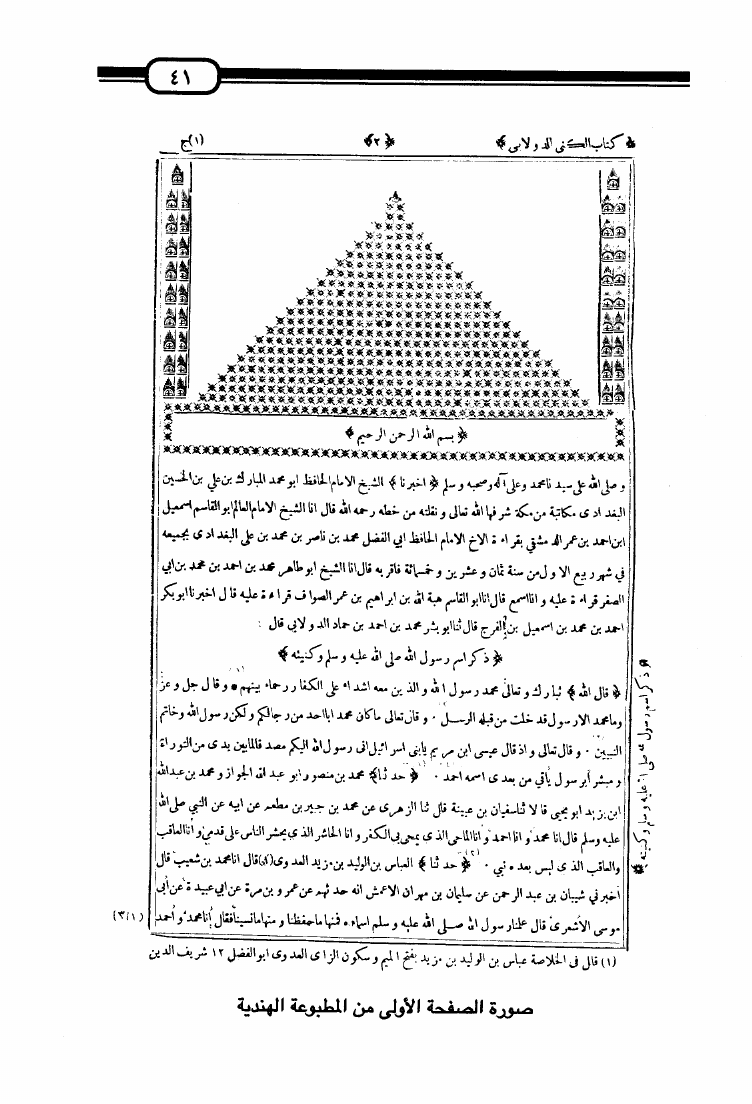 ٤١
﴿ كتاب الكنى الدولابى ﴾ ﴿٢﴾ ج(١)
﴿ بسم الله الرحمن الرحيم ﴾
و صلى الله على سيدنا محمد وعلى آله وصحبه وسلم ﴿ اخبرنا ﴾ الشيخ الامام الحافظ ابو محمد المبارك بن علي بن الحسين
البغدادى مكاتبة من مكة شرفها الله تعالى و نقلته من خطه رحمه الله قال انا الشيخ الامام العالم ابو القاسم اسمعيل
ابن احمد بن عمر الدمشقي بقراءة الاخ الامام الحافظ ابي الفضل محمد بن ناصر بن محمد بن على البغدادى بجميعه
في شهر ربيع الاول من سنة ثمان وعشرين و خمسمائة فاقر به قال انا الشيخ ابو طاهر محمد بن احمد بن محمد بن ابي
الصقر قراءة عليه و انا اسمع قال انا ابو القاسم هبة الله بن ابراهيم بن عمر الصواف قراءة عليه قال اخبرنا ابو بكر
احمد بن محمد بن اسمعيل بن الفرج قال ثنا ابو بشر محمد بن احمد بن حماد الدولابي قال :
﴿ ذكر اسم رسول الله صلى الله عليه وسلم وكنيته ﴾
﴿ قال الله ﴾ تبارك و تعالى محمد رسول الله والذين معه اشداء على الكفار رحماء بينهم * و قال جل و عز
وما محمد الا رسول قد خلت من قبله الرسل . وقال تعالى ما كان محمد ابا احد من رجالكم ولكن رسول الله وخاتم
النبيين . و قال تعالى و اذ قال عيسى ابن مريم يا بنى اسرائيل انى رسول الله اليكم مصدقا لما بين يدى من التوراة
و مبشرا برسول يأتي من بعدى اسمه احمد . ﴿ حدثنا ﴾ محمد بن منصور ابو عبد الله الجواز و محمد بن عبد الله
ابن يزيد ابو يحيى قالا ثنا سفيان بن عيينة قال ثنا الزهرى عن محمد بن جبير بن مطعم عن ابيه عن النبي صلى الله
عليه وسلم قال انا محمد و انا احمد و انا الماحى الذى يمحى بى الكفر و انا الحاشر الذى يحشر الناس على قدمي و انا العاقب
والعاقب الذى ليس بعده نبي . ﴿ حدثنا ﴾ العباس بن الوليد بن مزيد العدوى(١) قال انا محمد بن شعيب قال
اخبرني شيبان بن عبد الرحمن عن سليمان بن مهران الاعمش انه حدثهم عن عمرو بن مرة عن ابي عبيدة عن أبى
موسى الاشعرى قال علمنا رسول الله صلى الله عليه وسلم اسماءه فمنها ما حفظنا و منها ما نسينا فقال أنا محمد و أحمد
(٣/١)
﴿ ذكر اسم رسول الله صلى الله عليه وسلم وكنيته ﴾
(١) قال فى الخلاصة عباس بن الوليد بن مزيد بفتح الميم و سكون الزاى العدوى ابو الفضل ١٢ شريف الدين
صورة الصفحة الأولى من المطبوعة الهندية